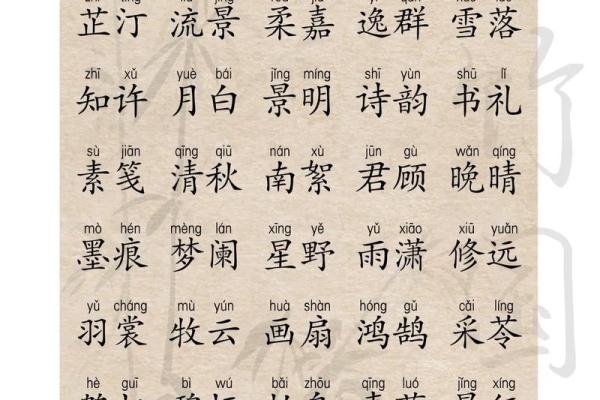 芷汀 流景 柔嘉 逸群 雪落
zhī xǔ yuè bái jǐng míng shī yùn shū lǐ
知许 月白 景明 诗韵 书礼
sù jiān qīng qiū nán xù jūn gù wǎn qíng
素笺 清秋 南絮 君顾 晚晴
mò hén mèng lán xīng yě yǔ xiāo xiū yuǎn
墨痕 梦阑 星野 雨潇 修远
yǔ cháng mù yún huà shàn hóng gǔ cǎi líng
羽裳 牧云 画扇 鸿鹄 采苓
hè guī bì wú bǎi zhōu qīng luó jǐng xíng